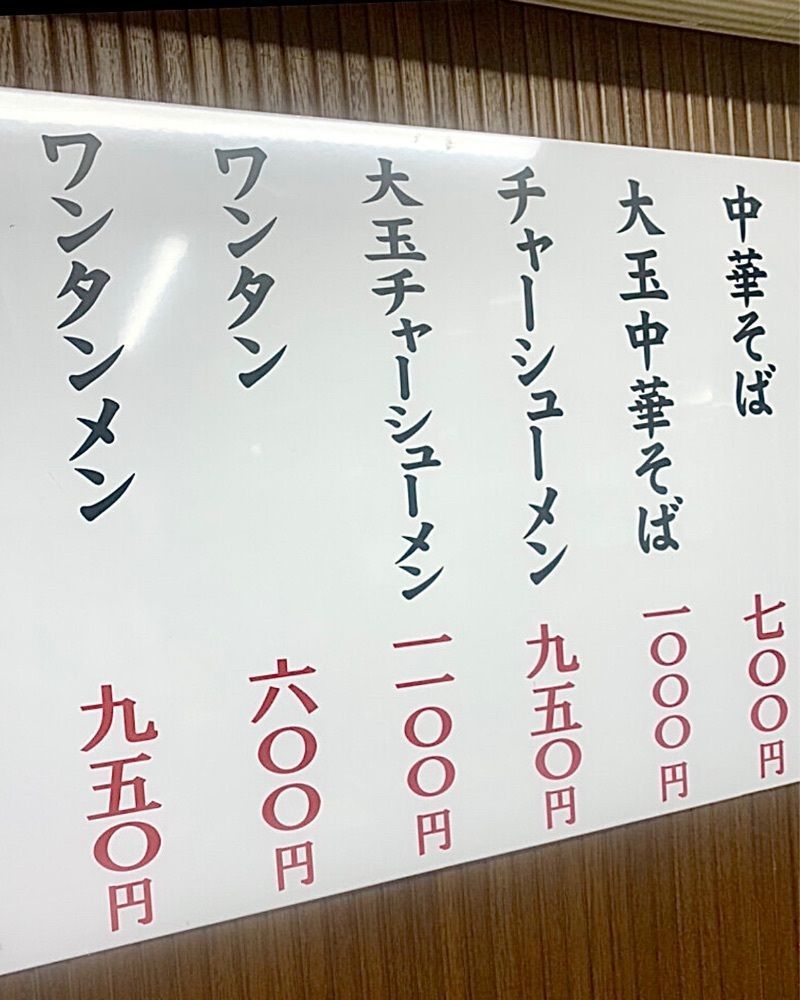 中華そば 七〇〇円
大玉中華そば 一〇〇〇円
チャーシューメン 九五〇円
大玉チャーシューメン 一一〇〇円
ワンタン 六〇〇円
ワンタンメン 九五〇円